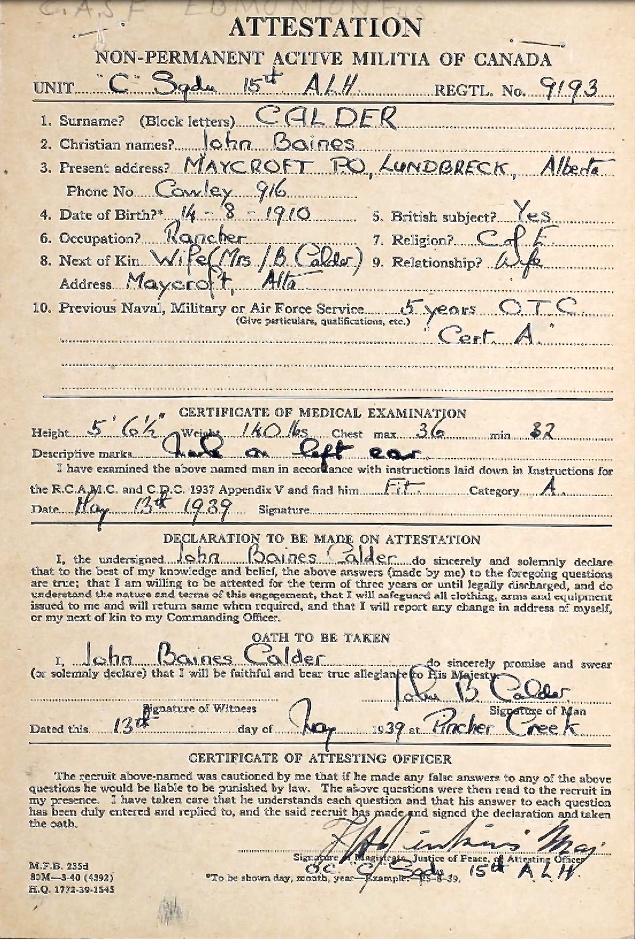 C.A.S.F EDMONTON
ATTESTATION
NON-PERMANENT ACTIVE MILITIA OF CANADA
UNIT "C" Sqdn 15th ALH REGTL. No. 9193
1. Surname? (Block letters) CALDER
2. Christian names? John Baines
3. Present address? MAYCROFT PO, LUNDBRECK, Alberta
Phone No Cowley 916
4. Date of Birth?* 14 - 8 - 1910 5. British subject? Yes
6. Occupation? Rancher 7. Religion? C of E
8. Next of Kin Wife (Mrs J B Calder) 9. Relationship? Wife
Address Maycroft, Alta
10. Previous Naval, Military or Air Force Service 5 years O T C
(Give particulars, qualifications, etc.) "Cert. A."
CERTIFICATE OF MEDICAL EXAMINATION
Height 5' 6½" Weight 140 lbs Chest max 36 min 32
Descriptive marks on left ear
I have examined the above named man in accordance with instructions laid down in Instructions for
the R.C.A.M.C. and C.D.C. 1937 Appendix V and find him Fit Category A.
Date May 13th 1939 Signature
DECLARATION TO BE MADE ON ATTESTATION
I, the undersigned John Baines Calder do sincerely and solemnly declare
that to the best of my knowledge and belief, the above answers (made by me) to the foregoing questions
are true; that I am willing to be attested for the term of three years or until legally discharged, and do
understand the nature and terms of this engagement, that I will safeguard all clothing, arms and equipment
issued to me and will return same when required, and that I will report any change in address of myself,
or my next of kin to my Commanding Officer.
OATH TO BE TAKEN
I, John Baines Calder do sincerely promise and swear
(or solemnly declare) that I will be faithful and bear true allegiance to His Majesty.
John B Calder
Signature of Witness Signature of Man
Dated this 13th day of May 1939 at Pincher Creek
CERTIFICATE OF ATTESTING OFFICER
The recruit above-named was cautioned by me that if he made any false answers to any of the above
questions he would be liable to be punished by law. The above questions were then read to the recruit in
my presence. I have taken care that he understands each question and that his answer to each question
has been duly entered and replied to, and the said recruit has made and signed the declaration and taken
the oath.
Maj
Signature of Magistrate, Justice of Peace, or Attesting Officer
OC "C" Sqdn 15th ALH
*To be shown day, month, year—Example, 25-8-39.
M.F.B. 235d
80M—3-40 (4392)
H.Q. 1772-39-1545